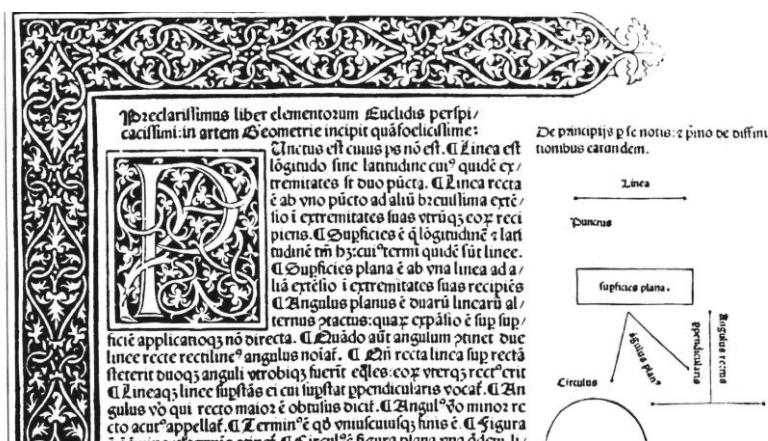 Preclarissimus liber elementorum Euclidis perspi/
cacissimi: in artem Geometrie incipit quãfoelicissime:
Punctus est cuius ps nõ est. ¶ Linea est
lõgitudo sine latitudine cuiꝰ quidẽ ex/
tremitates st duo pũcta. ¶ Linea recta
ẽ ab vno pũcto ad aliũ breuissima extẽ/
sio i extremitates suas vtrũqꝫ eoꝝ reci
piens. ¶ Supficies ẽ q̃ lõgitudinẽ ⁊ lati
tudinẽ tm̃ hꝫ: cuiꝰ termi quidẽ sũt linee.
¶ Supficies plana ẽ ab vna linea ad a/
liã extẽsio i extremitates suas recipiẽs
¶ Angulus planus ẽ duarũ linearũ al/
ternus ↄtactus: quaꝝ expãsio ẽ sup sup/
ficiẽ applicatioqꝫ nõ directa. ¶ Quãdo aũt angulum ↄtinet due
linee recte rectilineꝰ angulus noiat̃. ¶ Qñ recta linea sup rectã
steterit duoqꝫ anguli vtrobiqꝫ fuerit eq̃les: eoꝝ vterqꝫ rectꝰ erit
¶ Lineaqꝫ linee supstãs ei cui supstat ppendicularis vocat̃. ¶ An
gulus vo qui recto maior ẽ obtusus dicit̃. ¶ Angulꝰ vo minor re
cto acutꝰ appellat̃. ¶ Terminꝰ ẽ qd̃ vniuscuiusqꝫ finis ẽ. ¶ Figura
De principijs p se notis: ⁊ pmo de diffini
tionibus earandem.
Linea
Punctus
supficies plana.
ãgulus planꝰ
ppendicularis
Angulus rectus
Circulus